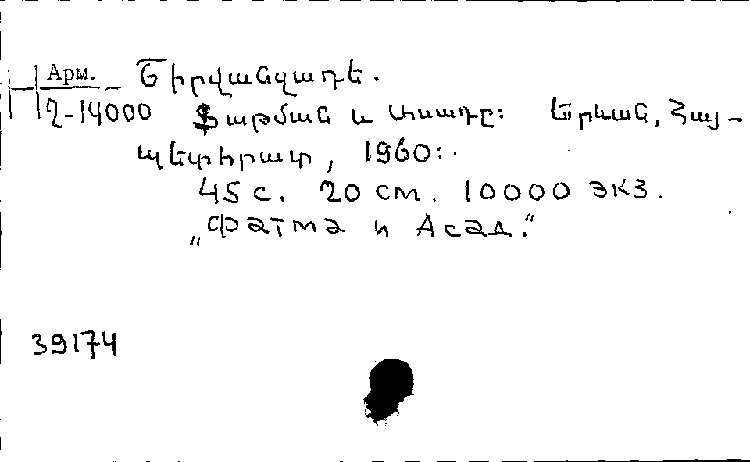 Арм. Շիրվանզադե.
2-14000 Ֆաթման և Ասադը: Երևան, Հայ-
պետհրատ, 1960:.
45 с. 20 см. 10000 экз.
„Фатма и Асад."
39174